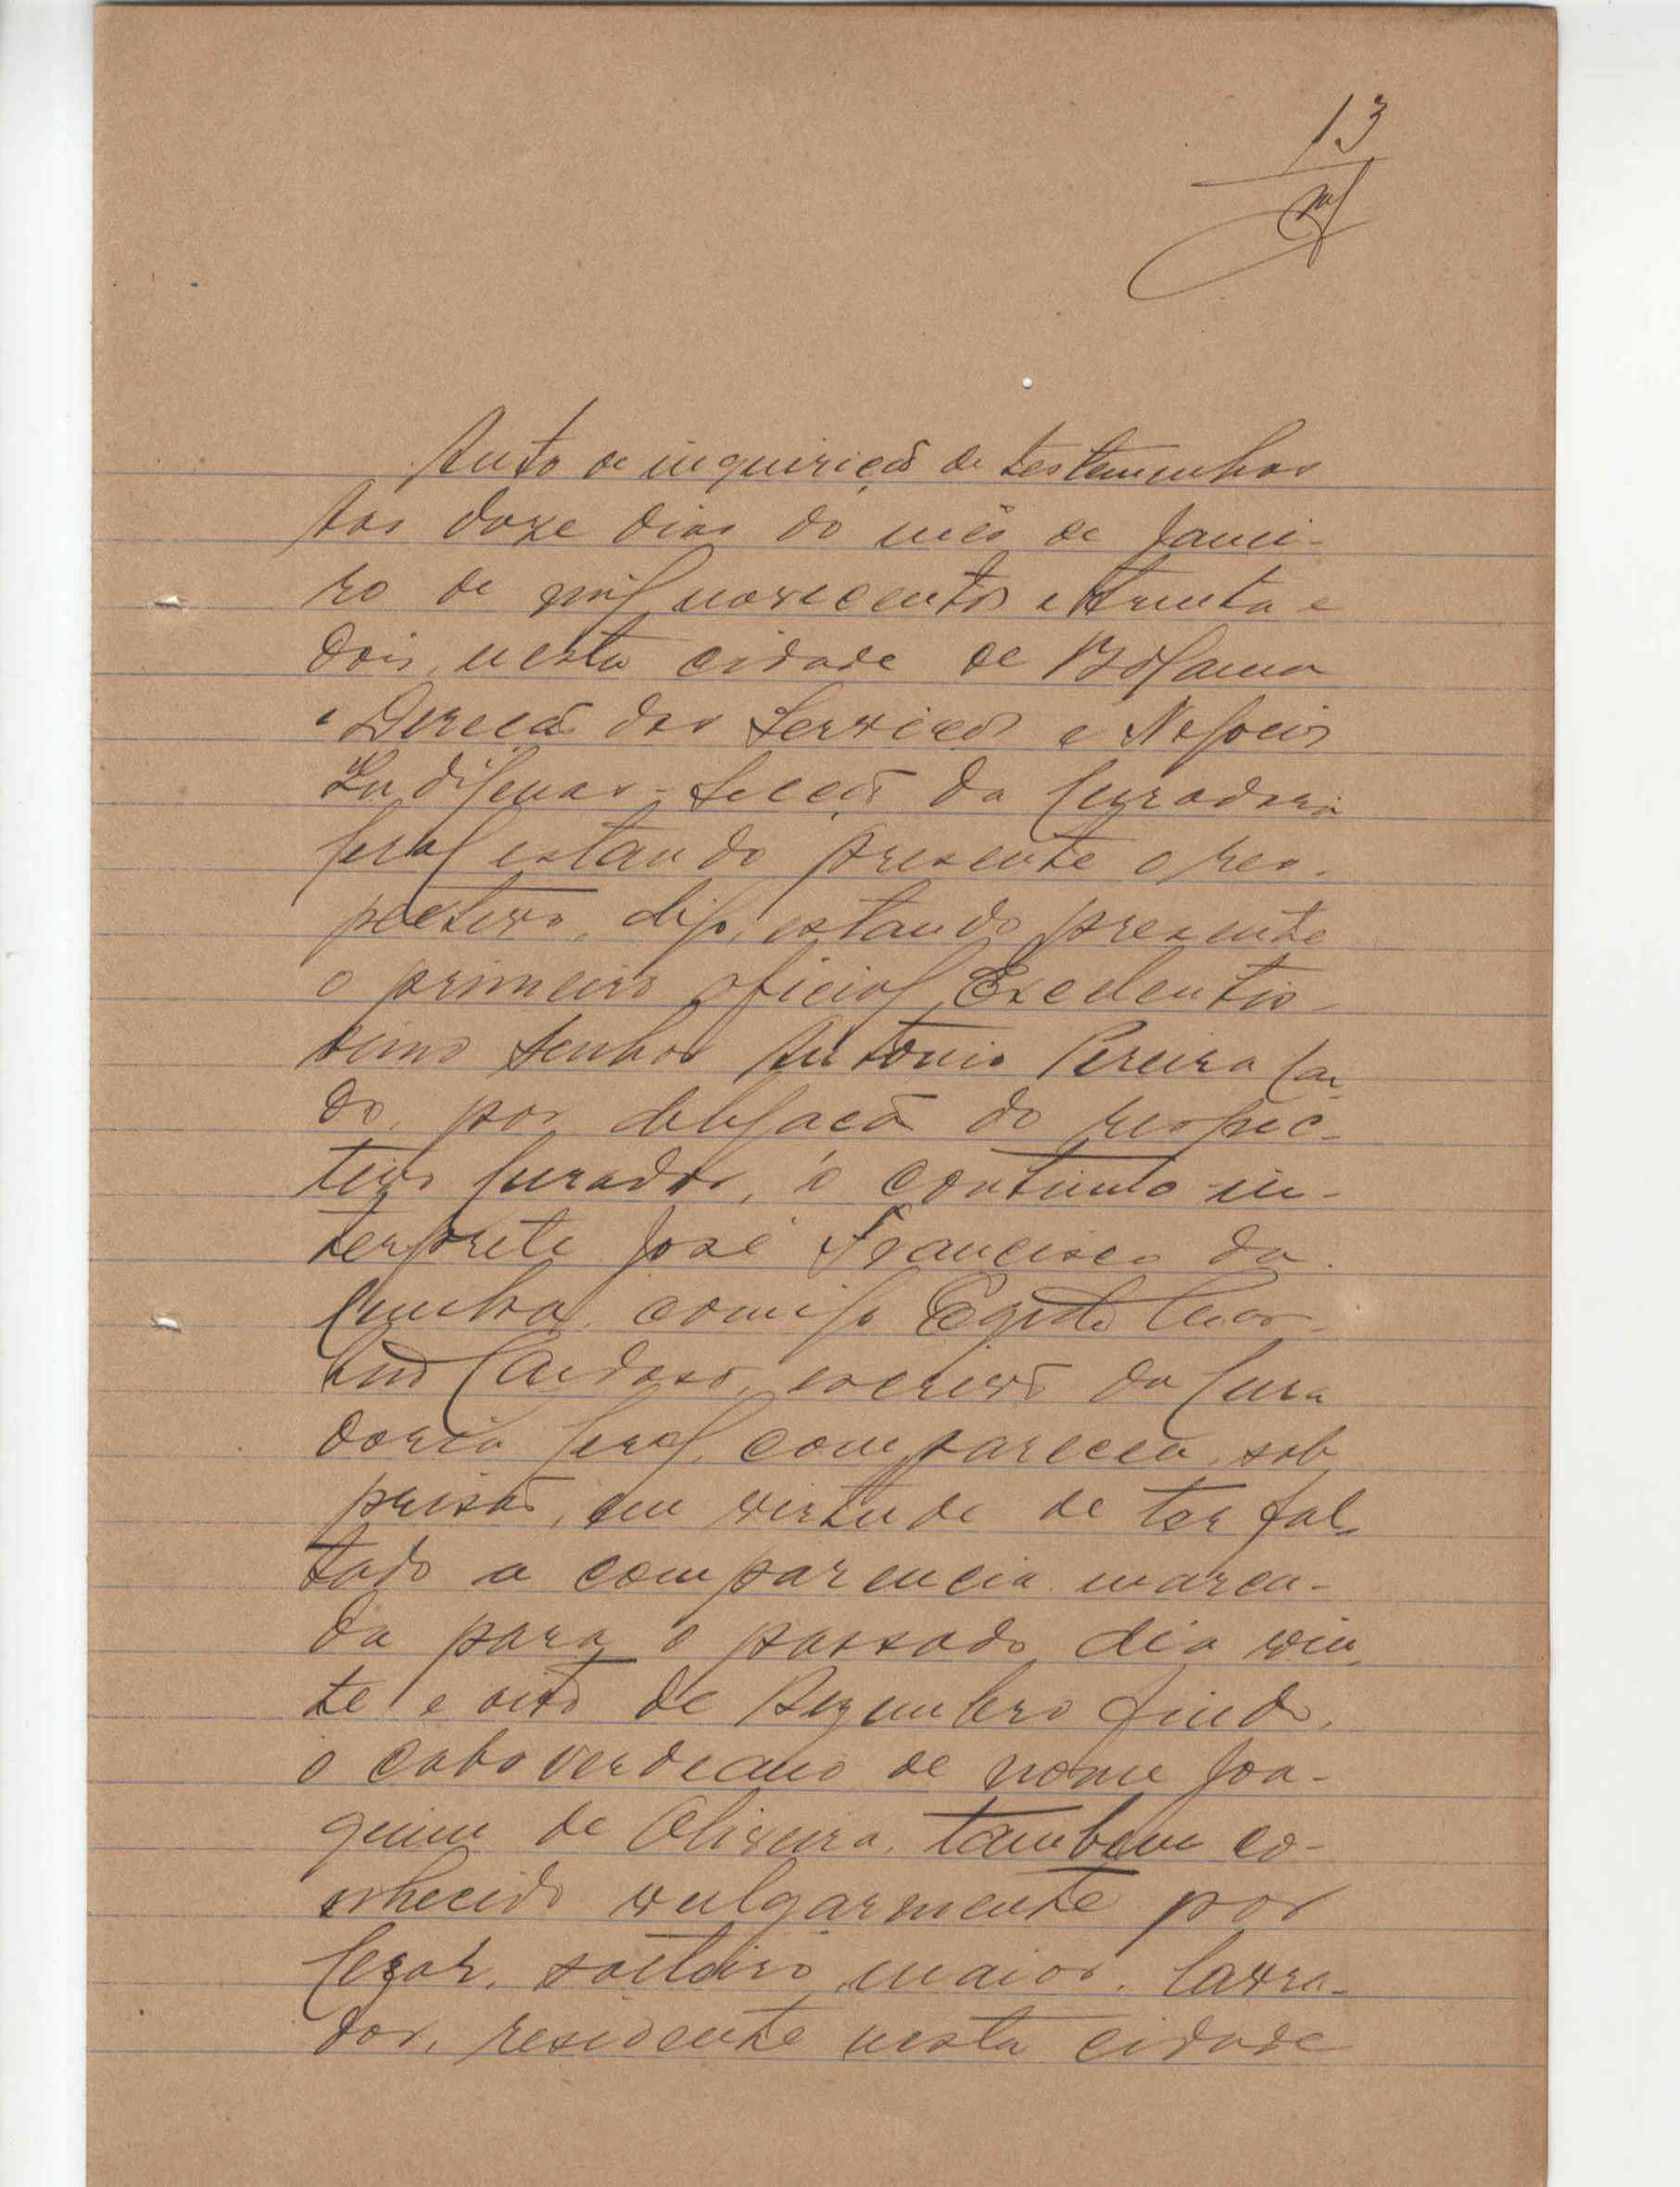 13
Auto de inquirição de testemunhas
Aos doze dias do mês de Janei-
ro de mil novecentos e trinta e
dois, nesta cidade de Bolama
e Direcção dos Serviços e Negocios
Indigenas - Secção da Curadoria
Geral estando presente o res-
pectivo, digo, estando presente
o primeiro oficial, Excelentis-
simo Senhor Antonio Pereira Car-
do, por delegação do respec-
tivo Curador, o continuo-in-
terprete José Francisco da
Cunha, comigo Egidio
Cardoso, escrivão da Cura
doria Geral, compareceu, sob
prisão, em virtude de ter fal-
tado a comparencia marca-
da para o passado dia vin-
te e oito de Dezembro findo,
o caboverdeano de nome Joa-
quim de Oliveira, tambem co-
nhecido vulgarmente por
Cezar, solteiro, maior, lavra-
dor, residente nesta cidade